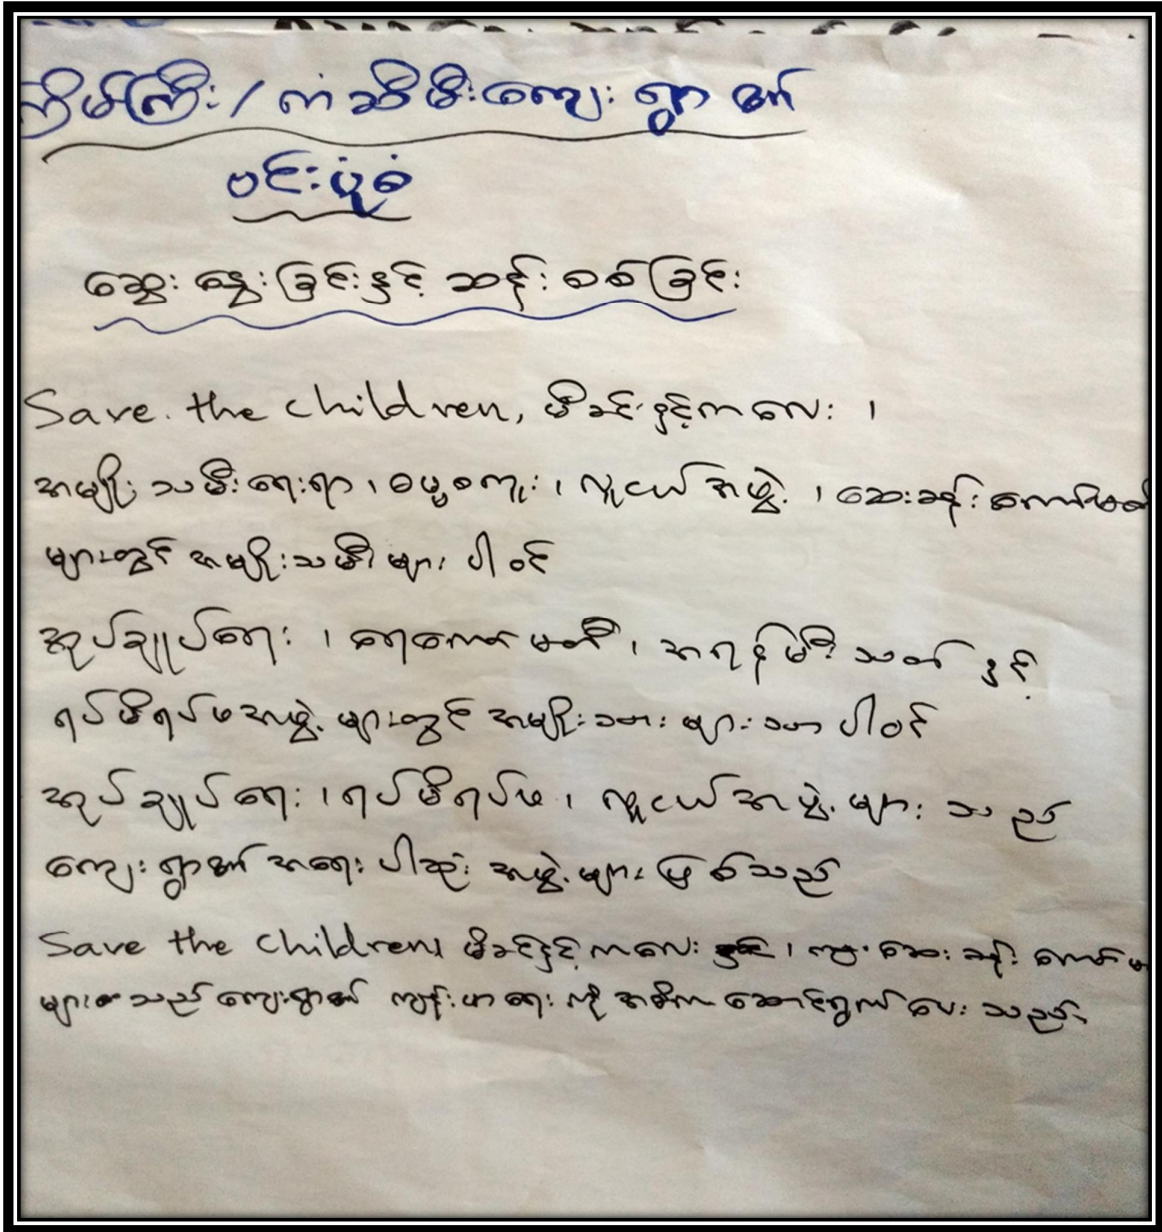 ကြိမ်ကြီး/ကံဆီမီးကျေးရွာ၏
ဗင်းပုံစံ
ဆွေးနွေးခြင်းနှင့် ဆန်းစစ်ခြင်း
Save the children, မိခင်နှင့်ကလေး ၊
အမျိုးသမီးရေးရာ ၊ ဓမ္မစကူး ၊ လူငယ်အဖွဲ့ ၊ ဆေးခန်းကော်မတီ
များတွင် အမျိုးသမီးများ ပါဝင်
အုပ်ချုပ်ရေး ၊ ရေကော်မတီ ၊ အရန်မီးသတ် နှင့်
ရပ်မိရပ်ဖအဖွဲ့များတွင် အမျိုးသားများသာ ပါဝင်
အုပ်ချုပ်ရေး ၊ ရပ်မိရပ်ဖ ၊ လူငယ်အဖွဲ့များ သည်
ကျေးရွာ၏ အရေးပါဆုံး အဖွဲ့များ ဖြစ်သည်
Save the children၊ မိခင်နှင့်ကလေး ၊ ဆေးခန်း ကော်မ
များသည် ကျေးရွာ၏ ကျန်းမာရေးကို အဓိက ဆောင်ရွက်ပေးသည်။